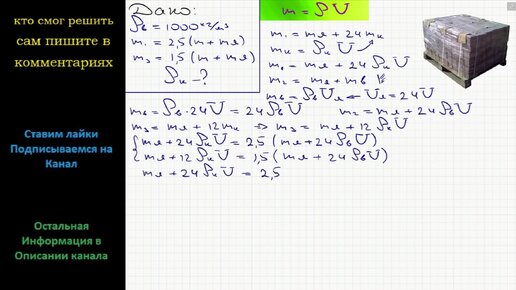 кто смог решить
сам пишите в
комментариях
Ставим лайки
Подписываемся на
Канал
Остальная
Информация в
Описании канала
Дано:
ρв = 1000 кг/м³
m₁ = 2,5 (m + mя)
m₃ = 1,5 (m + mя)
ρк - ?
m = ρV
m₁ = mя + 24mк
mк = ρк V
m₁ = mя + 24 ρк V
m₂ = mя + mв
mв = ρв Vя ⇐ Vя = 24V
mв = ρв · 24V = 24ρв V
m₂ = mя + 24ρв V
m₃ = mя + 12mк ⇒ m₃ = mя + 12 ρк V
mя + 24ρк V = 2,5 (mя + 24ρв V)
mя + 12ρк V = 1,5 (mя + 24ρв V)
mя + 24ρк V = 2,5